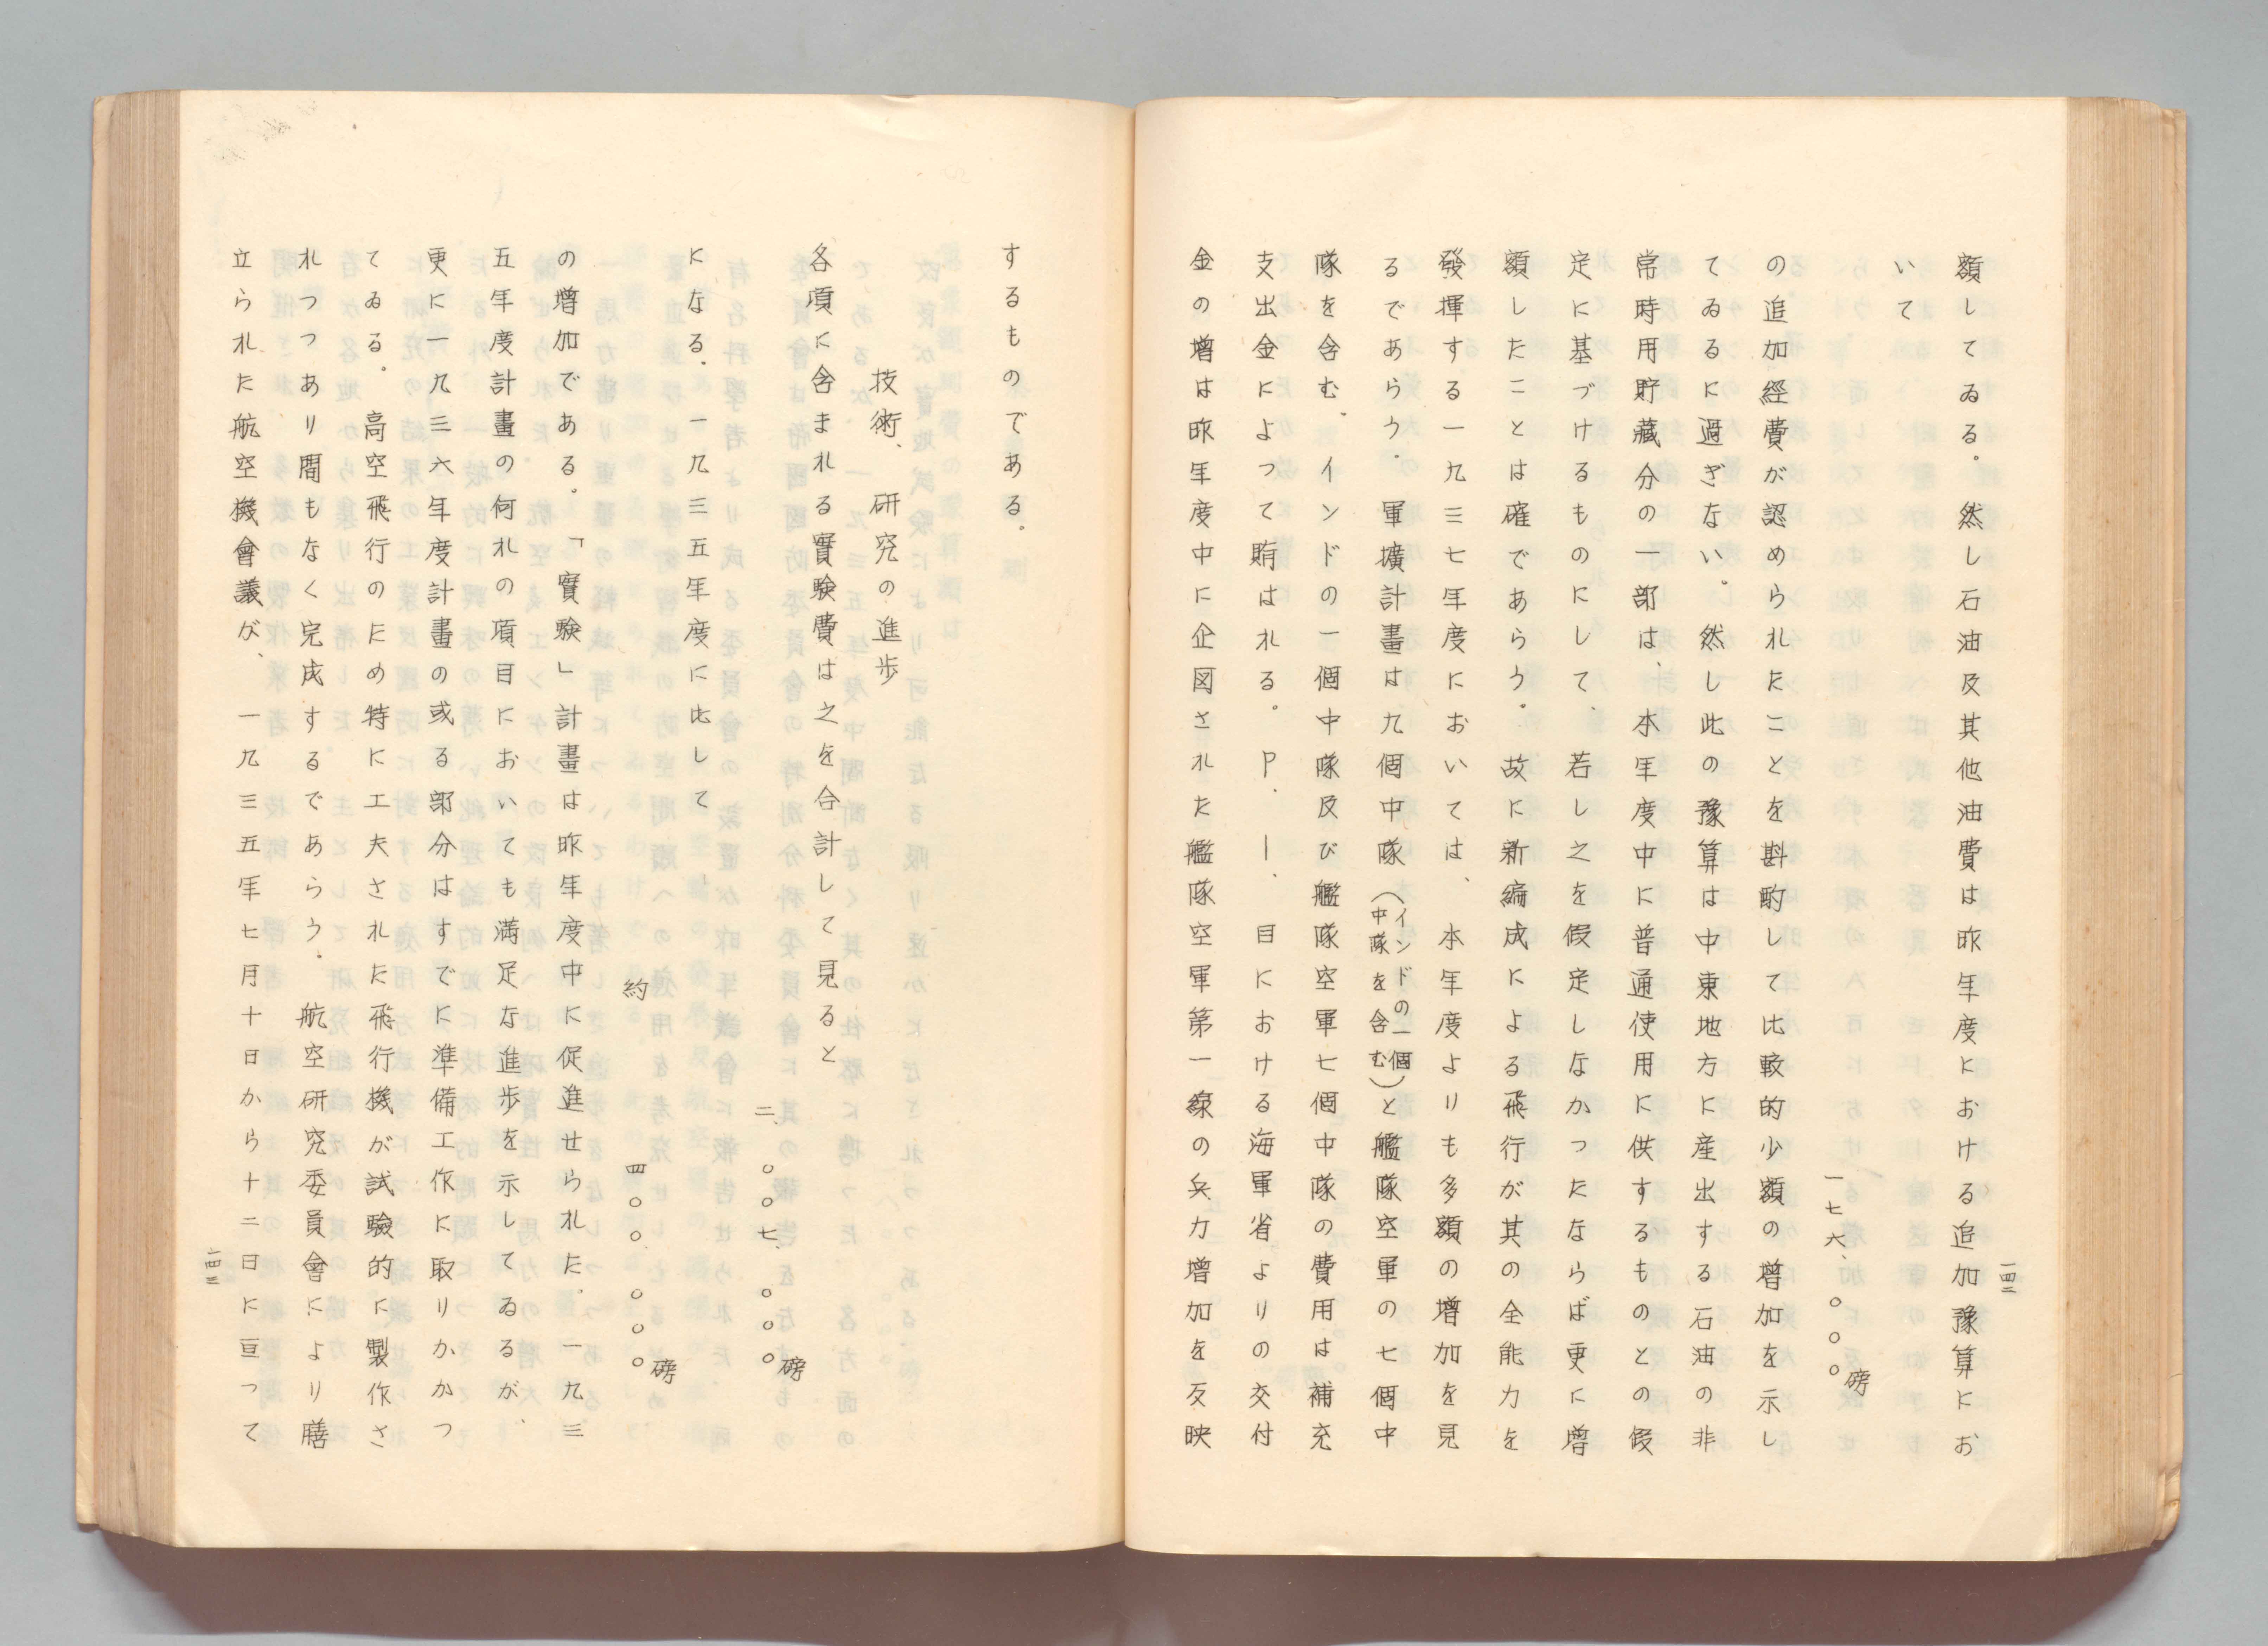 額してゐる。然し石油及其他油費は昨年度における追加豫算にお
いて
一七六、〇〇〇磅
の追加經費が認められたことを斟酌して比較的少額の増加を示し
てゐるに過ぎない。然し此の豫算は中東地方に産出する石油の非
常時用貯藏分の一部は、本年度中に普通使用に供するものとの假
定に基づけるものにして、若し之を假定しなかつたならば更に増
額したことは確であらう。故に新編成による飛行が其の全能力を
發揮する一九三七年度においては、本年度よりも多額の増加を見
るであらう。軍擴計畫は九個中隊（インドの一個中隊を含む）と艦隊空軍の七個中
隊を含む。インドの一個中隊及び艦隊空軍七個中隊の費用は補充
支出金によつて賄はれる。P.I.目における海軍省よりの交付
金の増は昨年度中に企図された艦隊空軍第一線の兵力増加を反映
一四二
するものである。
技術、研究の進歩
各項に含まれる實験費は之を合計して見ると
二、〇〇七、〇〇〇磅
になる。一九三五年度に比して
約四〇〇、〇〇〇磅
の増加である。「實験」計畫は昨年度中に促進せられた。一九三
五年度計畫の何れの項目においても満足な進歩を示してゐるが、
更に一九三六年度計畫の或る部分はすでに準備工作に取りかかつ
てゐる。高空飛行のため特に工夫された飛行機が試験的に製作さ
れつつあり間もなく完成するであらう。航空研究委員會により膳
立られた航空機會議が、一九三五年七月十日から十二日に亘つて
一四三